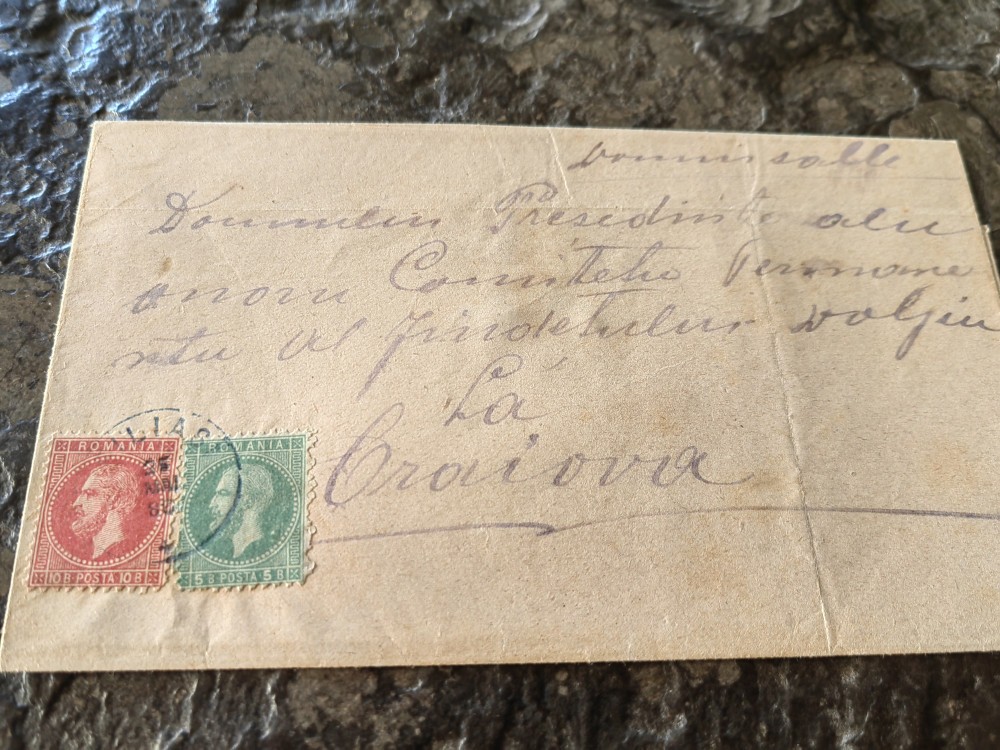 Domnului Presedinte alu
onoru Comitetu Permane
ntu al Judetului Doljiu
La
Craiova
ROMANIA
10 B. POSTA 10 B
ROMANIA
5 B POSTA 5 B